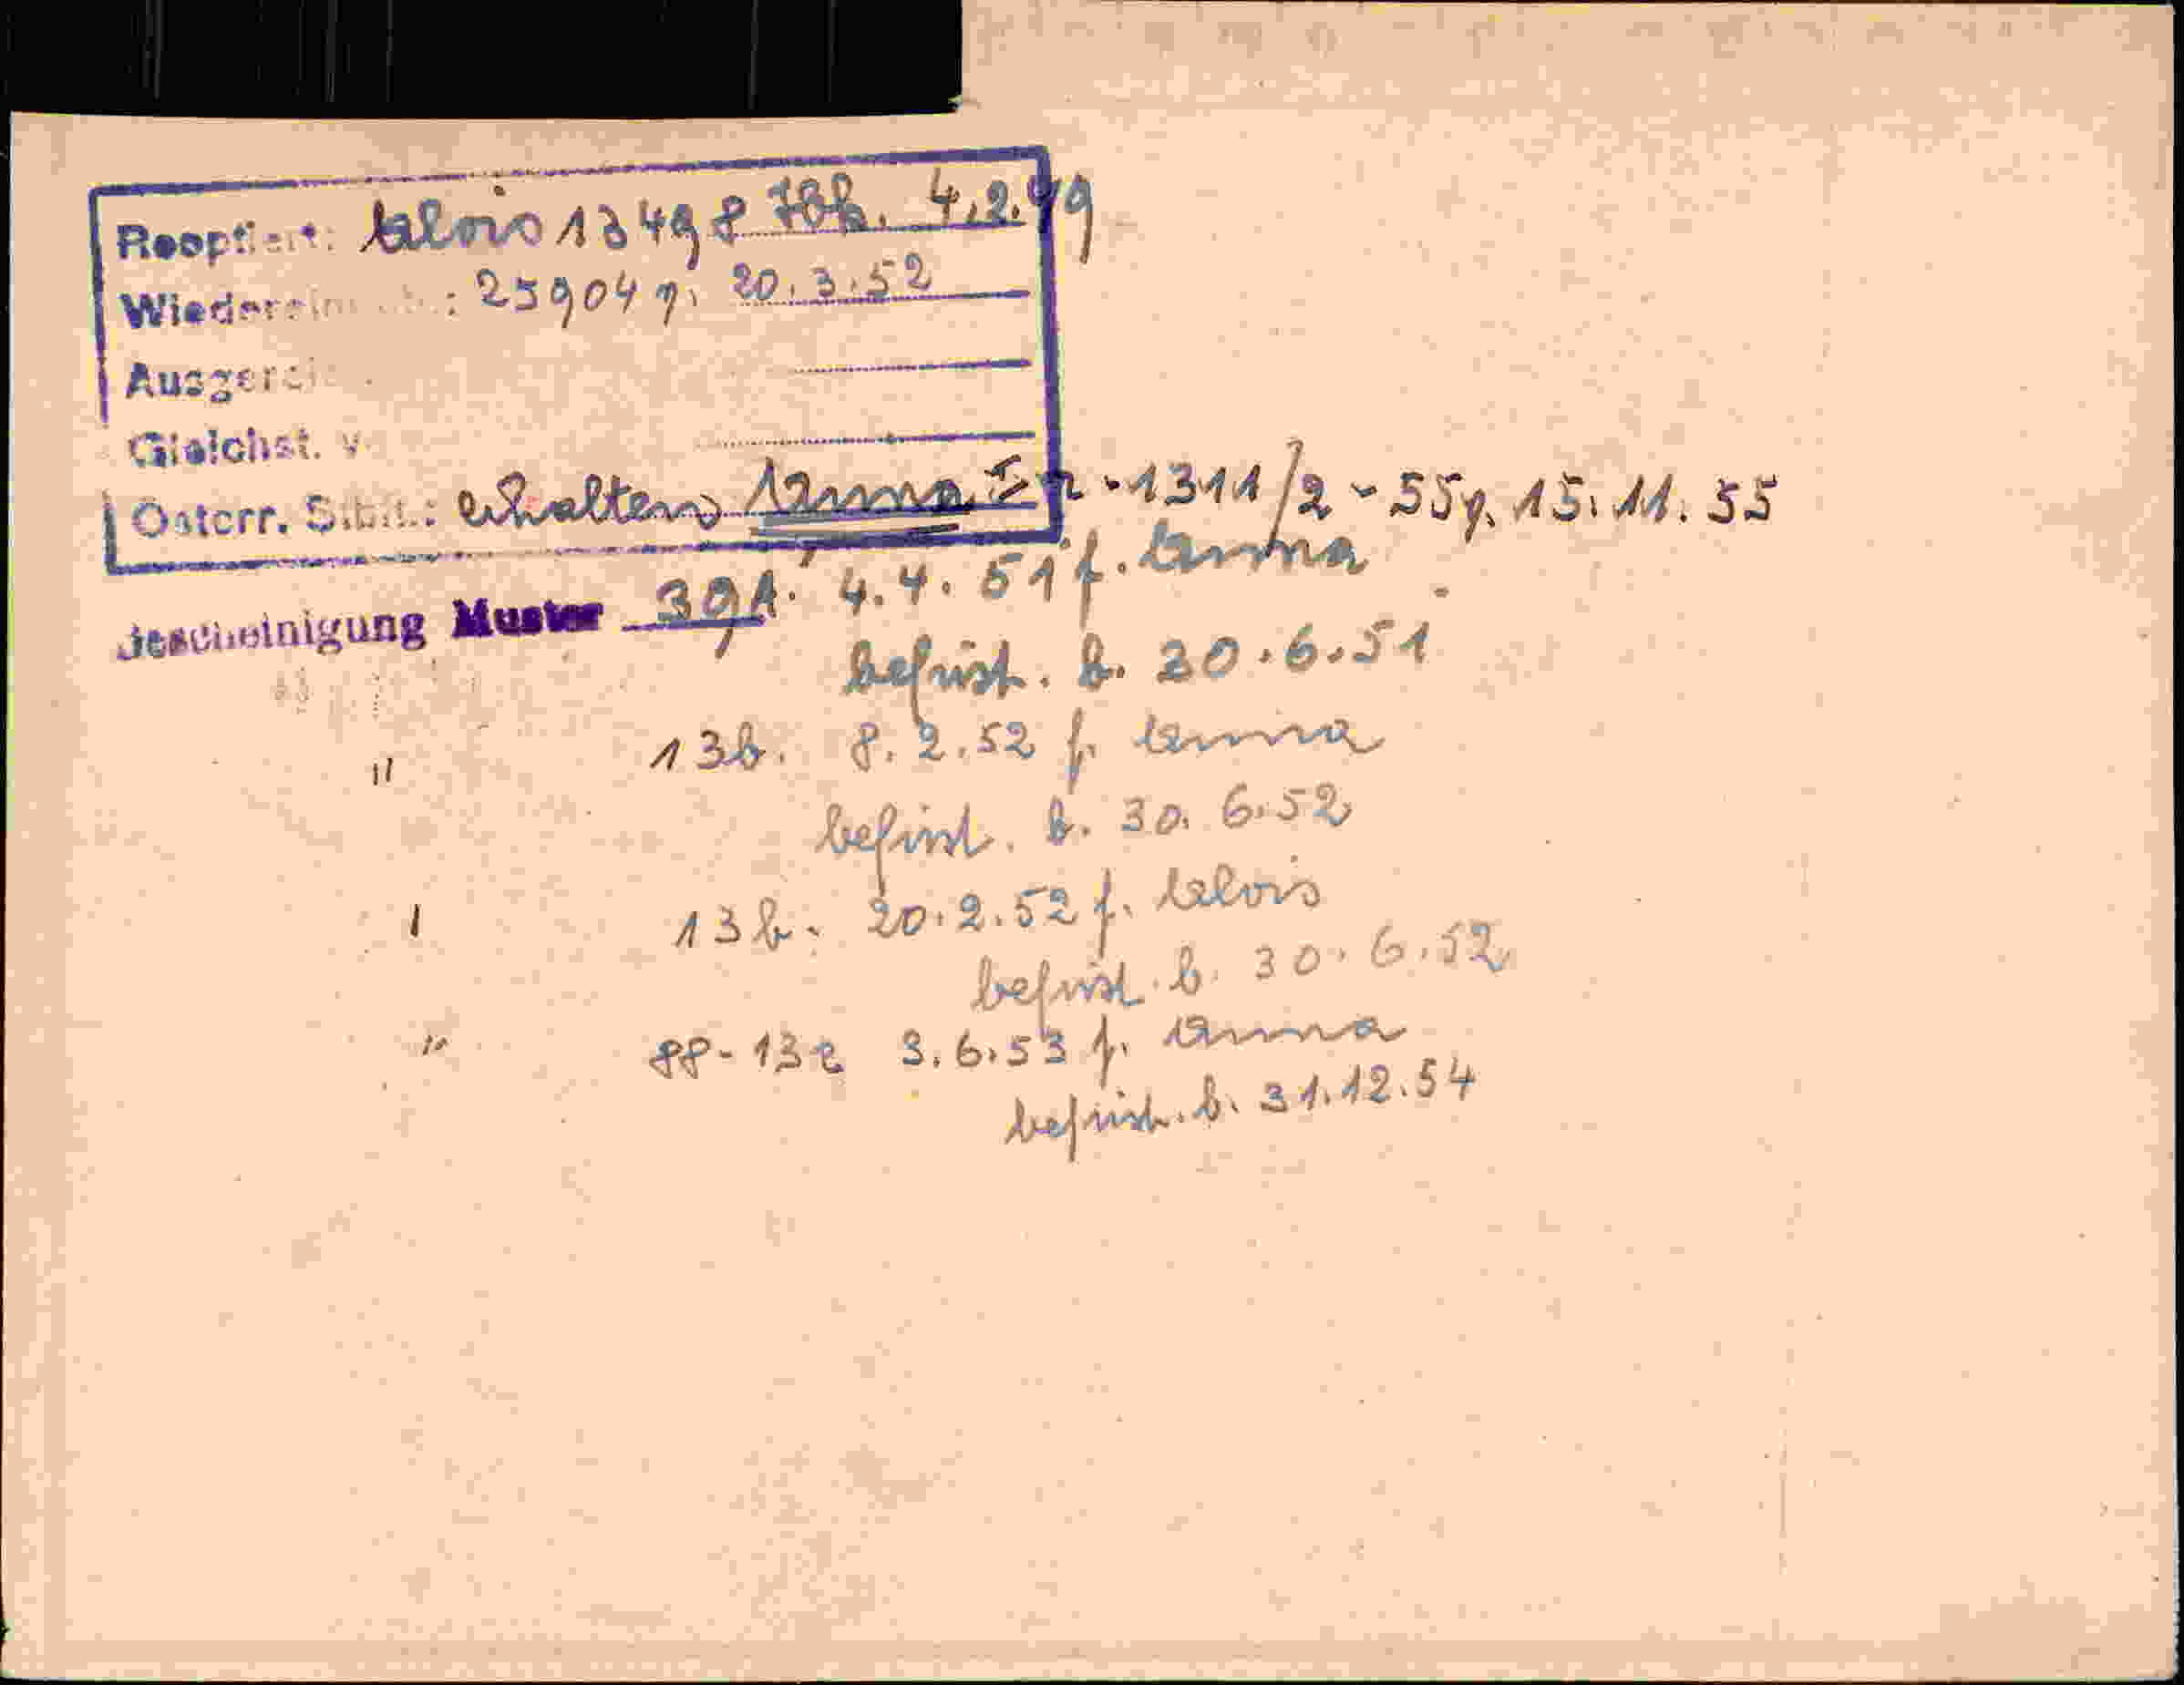 Reoptiert: Alois 13498 4.2.49
: 25904 v. 20.3.52
Ausger
Gleichst. v.
Österr. S.b.: erhalten Anna - 1311/2 - 55 v. 15.11.55
Bescheinigung Muster 39A. 4.4.51 f. Anna
befrist. b. 30.6.51
" 13b. 8.2.52 f. Anna
befrist. b. 30.6.52
" 13b. 20.2.52 f. Alois
befrist. b. 30.6.52
" 88-13e 3.6.53 f. Anna
befrist. b. 31.12.54